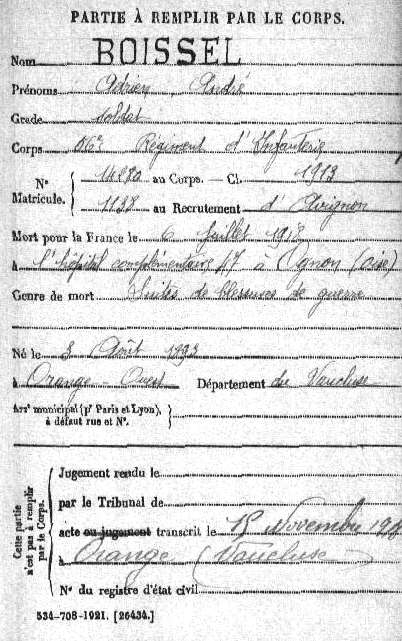 PARTIE À REMPLIR PAR LE CORPS.
Nom BOISSEL
Prénoms Adrien André
Grade soldat
Corps Régiment d'Infanterie
N° Matricule. { 14880 au Corps. — Cl. 1913
1138 au Recrutement d'Avignon
Mort pour la France le 6 Juillet 1918
à l'hôpital complémentaire 47 à Ognon (oise)
Genre de mort Suites de blessures de guerre
Né le 3 Août 1893
à Orange - Ouest Département du Vaucluse
Arr<sup>t</sup> municipal (p<sup>r</sup> Paris et Lyon), à défaut rue et N°. }
Cette partie n'est pas à remplir par le Corps.
Jugement rendu le
par le Tribunal de
acte ou jugement transcrit le 15 Novembre
à Orange (Vaucluse
N° du registre d'état civil
534-708-1921. [26434.]